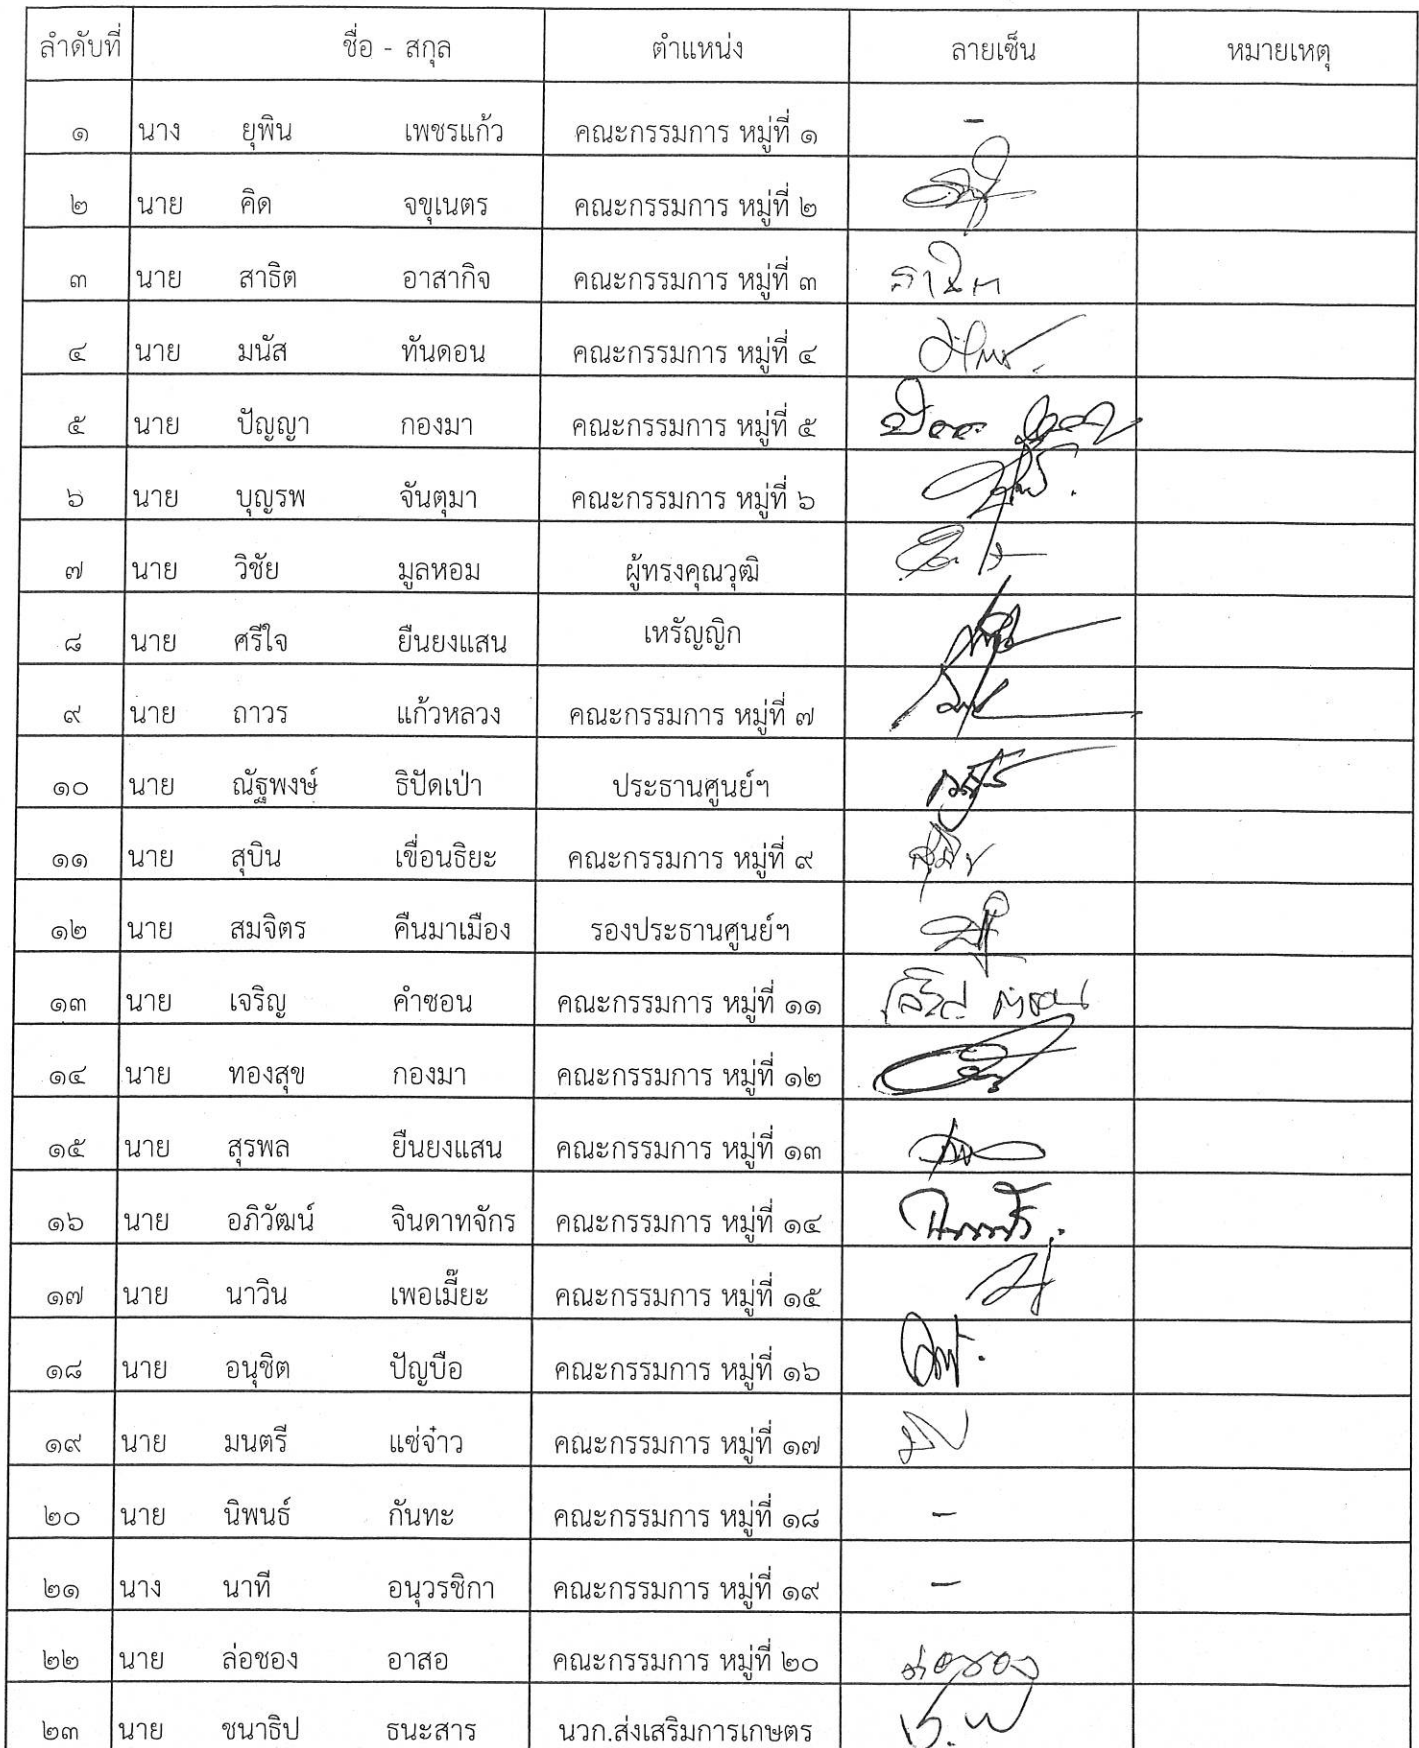 ลำดับที่ ชื่อ - สกุล ตำแหน่ง ลายเซ็น หมายเหตุ
๑ นาง ยุพิน เพชรแก้ว คณะกรรมการ หมู่ที่ ๑ -
๒ นาย คิด จขุเนตร คณะกรรมการ หมู่ที่ ๒
๓ นาย สาธิต อาสากิจ คณะกรรมการ หมู่ที่ ๓
๔ นาย มนัส ทันดอน คณะกรรมการ หมู่ที่ ๔
๕ นาย ปัญญา กองมา คณะกรรมการ หมู่ที่ ๕
๖ นาย บุญรพ จันตุมา คณะกรรมการ หมู่ที่ ๖
๗ นาย วิชัย มูลหอม ผู้ทรงคุณวุฒิ
๘ นาย ศรีใจ ยืนยงแสน เหรัญญิก
๙ นาย ถาวร แก้วหลวง คณะกรรมการ หมู่ที่ ๗
๑๐ นาย ณัฐพงษ์ ธิปัดเป่า ประธานศูนย์ฯ
๑๑ นาย สุบิน เขื่อนธิยะ คณะกรรมการ หมู่ที่ ๙
๑๒ นาย สมจิตร คืนมาเมือง รองประธานศูนย์ฯ
๑๓ นาย เจริญ คำซอน คณะกรรมการ หมู่ที่ ๑๑
๑๔ นาย ทองสุข กองมา คณะกรรมการ หมู่ที่ ๑๒
๑๕ นาย สุรพล ยืนยงแสน คณะกรรมการ หมู่ที่ ๑๓
๑๖ นาย อภิวัฒน์ จินดาทจักร คณะกรรมการ หมู่ที่ ๑๔
๑๗ นาย นาวิน เพอเมี๊ยะ คณะกรรมการ หมู่ที่ ๑๕
๑๘ นาย อนุชิต ปัญบือ คณะกรรมการ หมู่ที่ ๑๖
๑๙ นาย มนตรี แซ่จ๋าว คณะกรรมการ หมู่ที่ ๑๗
๒๐ นาย นิพนธ์ กันทะ คณะกรรมการ หมู่ที่ ๑๘ -
๒๑ นาง นาที อนุวรชิกา คณะกรรมการ หมู่ที่ ๑๙ -
๒๒ นาย ล่อชอง อาสอ คณะกรรมการ หมู่ที่ ๒๐ ล่อชอง
๒๓ นาย ชนาธิป ธนะสาร นวก.ส่งเสริมการเกษตร